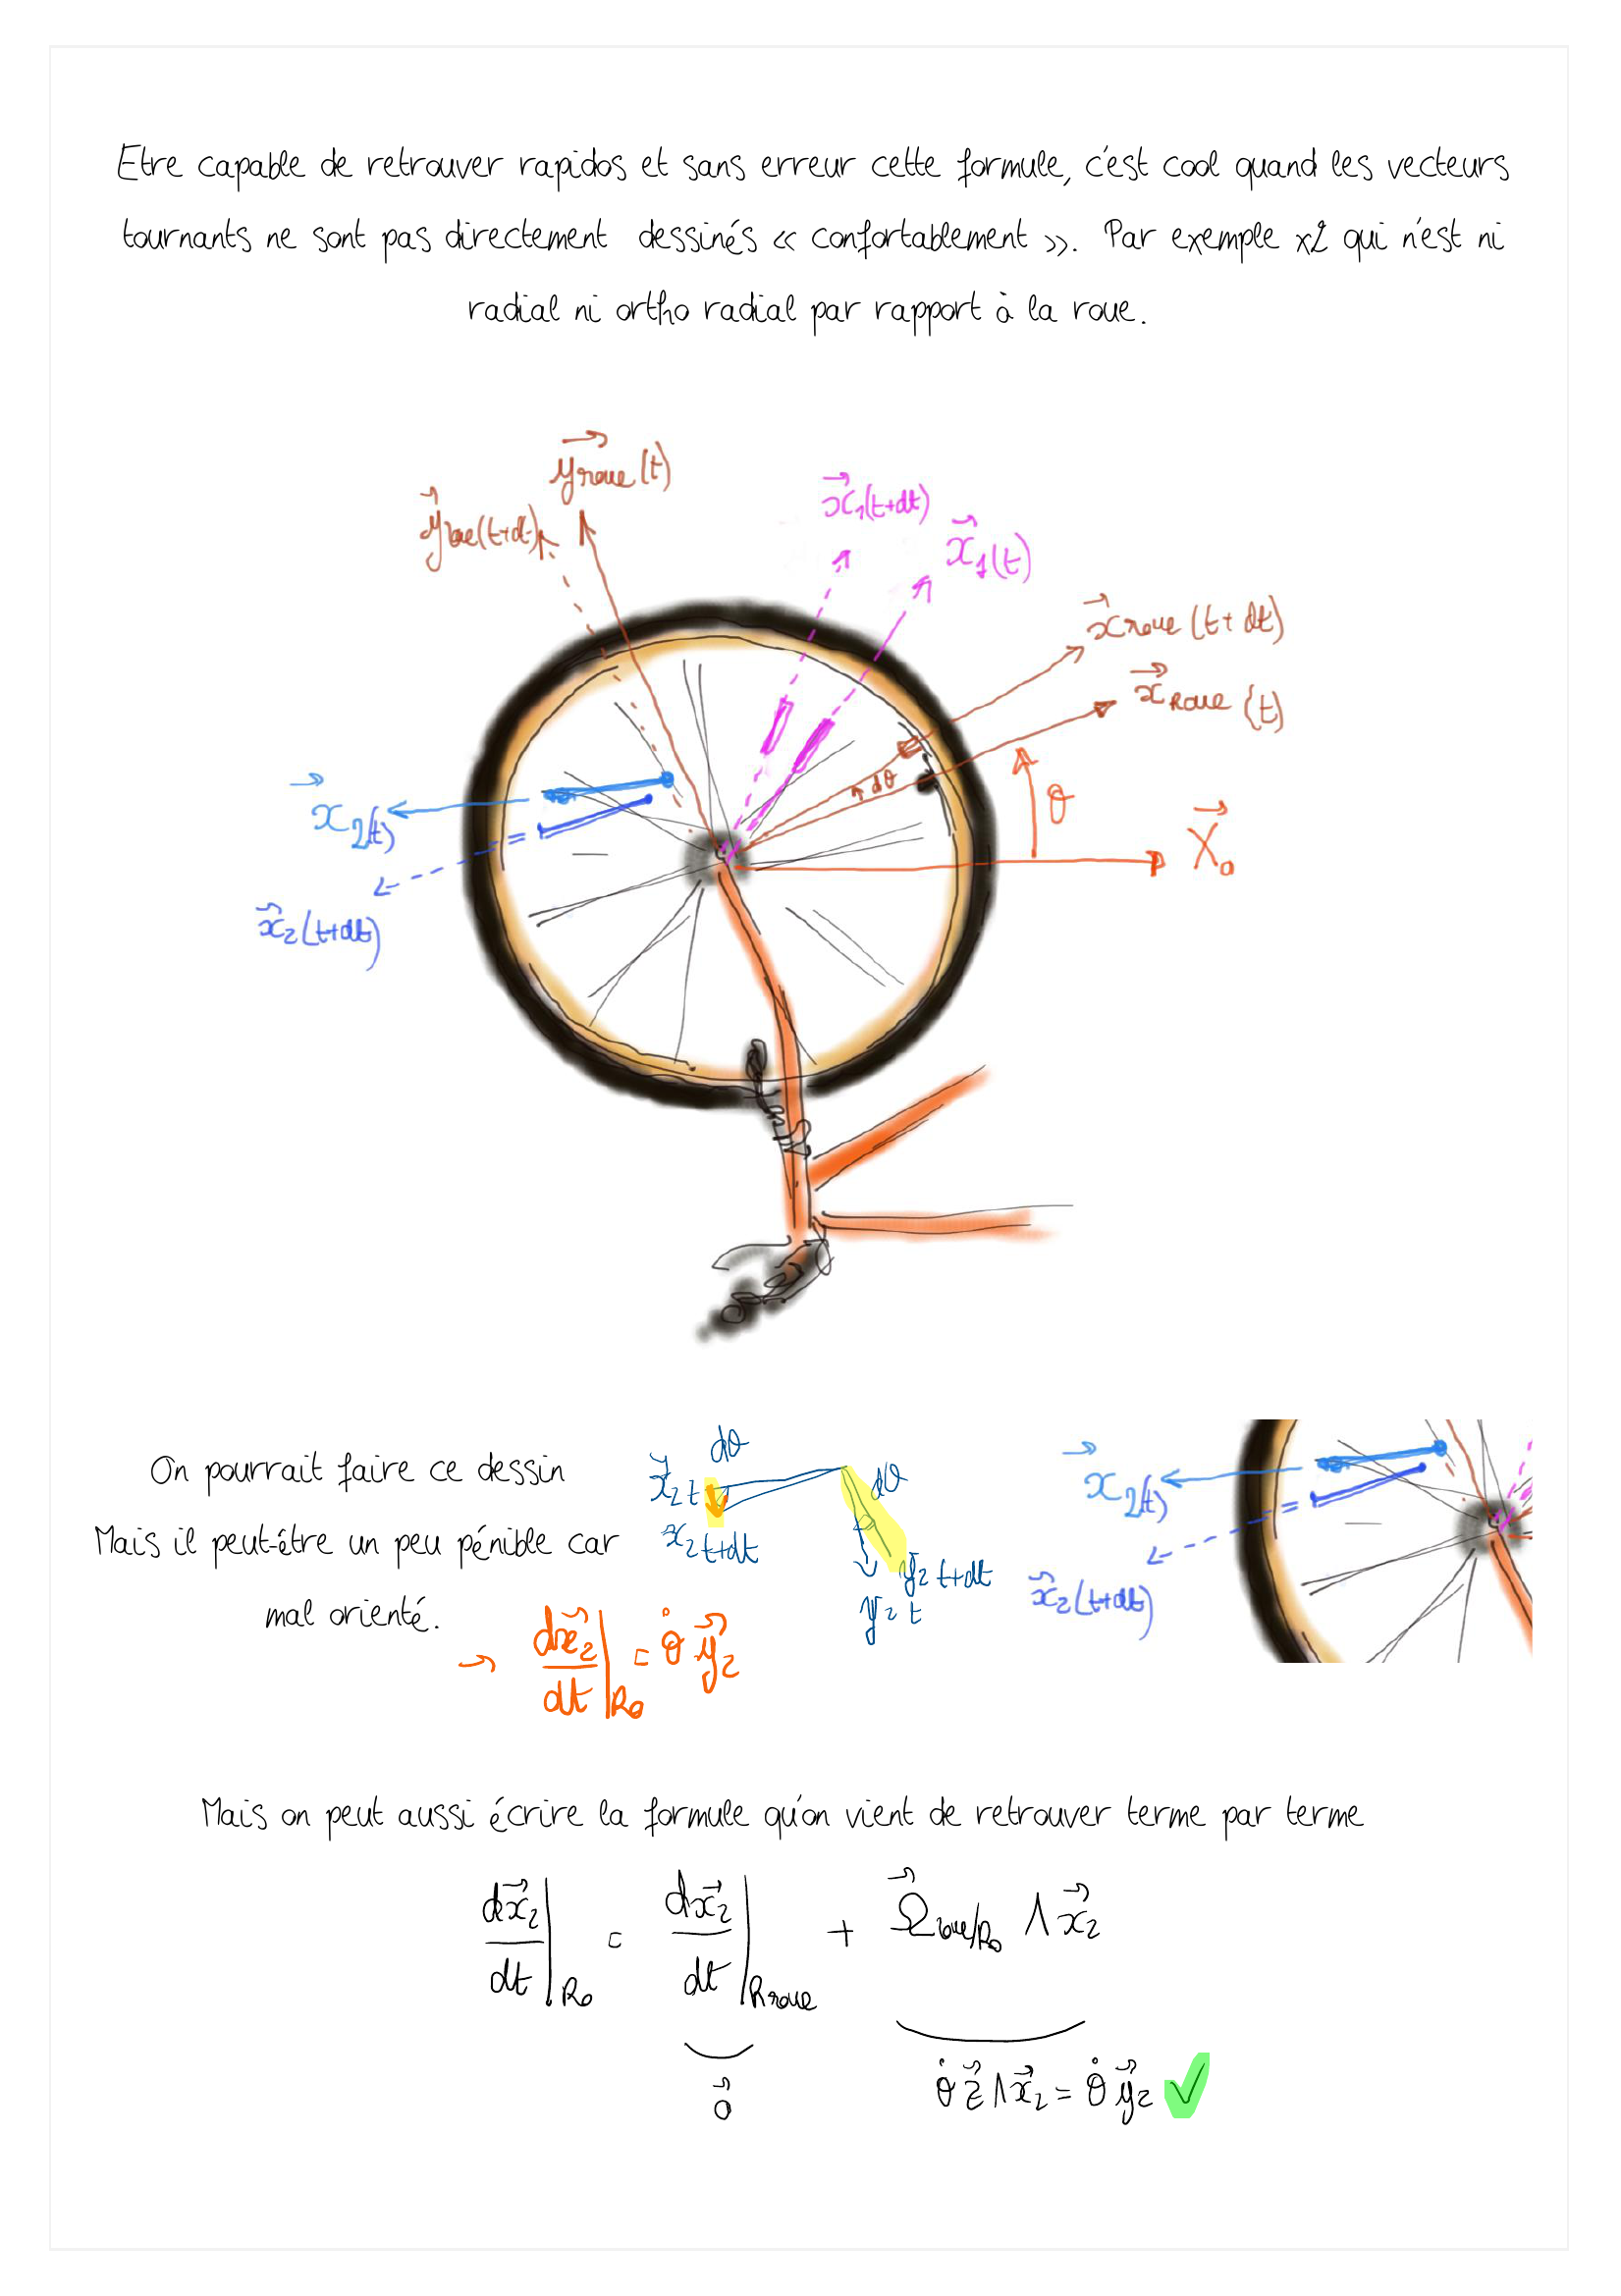 Etre capable de retrouver rapidos et sans erreur cette formule, c'est cool quand les vecteurs
tournants ne sont pas directement dessinés « confortablement ». Par exemple x2 qui n'est ni
radial ni ortho radial par rapport à la roue.
y⃗roue (t)
y⃗roue(t+dt)
x⃗₁(t+dt)
x⃗₁(t)
x⃗roue (t+dt)
x⃗Roue (t)
dθ
θ
X⃗₀
x⃗₂(t)
x⃗₂(t+dt)
On pourrait faire ce dessin
Mais il peut-être un peu pénible car
mal orienté.
dθ
x⃗₂ t
x₂ t+dt
dθ
y₂ t+dt
y₂ t
x⃗₂(t)
x⃗₂(t+dt)
→ dx⃗₂/dt|R₀ = θ̇ y⃗₂
Mais on peut aussi écrire la formule qu'on vient de retrouver terme par terme
dx⃗₂/dt|R₀ = dx⃗₂/dt|Rroue + Ω⃗roue/R₀ Λ x⃗₂
0⃗
θ̇ z⃗ Λ x⃗₂ = θ̇ y⃗₂ ✓